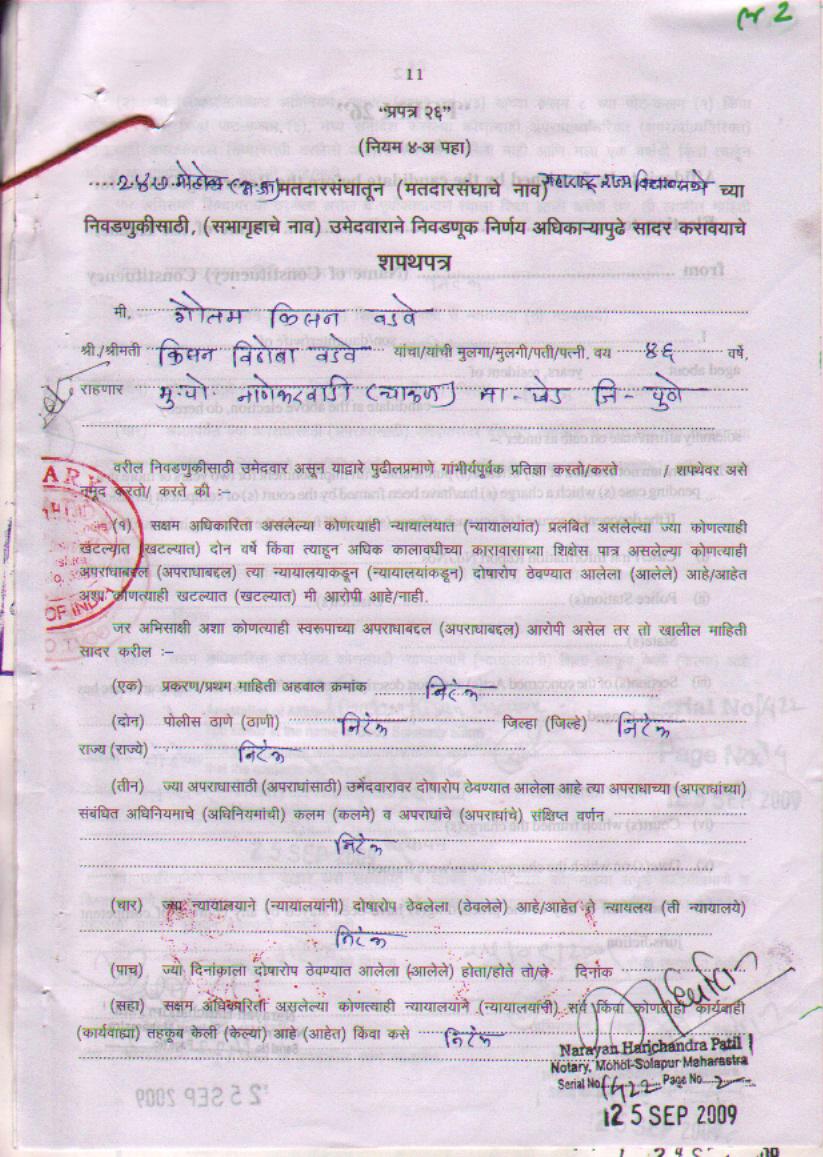 पत्र 2
11
"प्रपत्र २६"
(नियम ४-अ पहा)
२४७ मोहोळ (अ.जा) मतदारसंघातून (मतदारसंघाचे नाव) महाराष्ट्र राज्य विधानसभे च्या
निवडणुकीसाठी, (सभागृहाचे नाव) उमेदवाराने निवडणूक निर्णय अधिकाऱ्यापुढे सादर करावयाचे
शपथपत्र
मी, गौतम किसन वडवे
श्री./श्रीमती किसन विठोबा वडवे यांचा/यांची मुलगा/मुलगी/पती/पत्नी, वय ४६ वर्षे,
राहणार मु.पो. नाणेकरवाडी (चाकण) ता-खेड जि- पुणे
वरील निवडणुकीसाठी उमेदवार असून याद्वारे पुढीलप्रमाणे गांभीर्यपूर्वक प्रतिज्ञा करतो/करते / शपथेवर असे
नमूद करतो/ करते की :–
(१) सक्षम अधिकारिता असलेल्या कोणत्याही न्यायालयात (न्यायालयांत) प्रलंबित असलेल्या ज्या कोणत्याही
खटल्यात (खटल्यात) दोन वर्षे किंवा त्याहून अधिक कालावधीच्या कारावासाच्या शिक्षेस पात्र असलेल्या कोणत्याही
अपराधाबद्दल (अपराधाबद्दल) त्या न्यायालयाकडून (न्यायालयांकडून) दोषारोप ठेवण्यात आलेला (आलेले) आहे/आहेत
अशा कोणत्याही खटल्यात (खटल्यात) मी आरोपी आहे/नाही.
जर अभिसाक्षी अशा कोणत्याही स्वरूपाच्या अपराधाबद्दल (अपराधाबद्दल) आरोपी असेल तर तो खालील माहिती
सादर करील :–
(एक) प्रकरण/प्रथम माहिती अहवाल क्रमांक निरंक
(दोन) पोलीस ठाणे (ठाणी) निरंक जिल्हा (जिल्हे) निरंक
राज्य (राज्ये) निरंक
(तीन) ज्या अपराधासाठी (अपराधांसाठी) उमेदवारावर दोषारोप ठेवण्यात आलेला आहे त्या अपराधाच्या (अपराधांच्या)
संबंधित अधिनियमाचे (अधिनियमांची) कलम (कलमे) व अपराधांचे (अपराधांचे) संक्षिप्त वर्णन
निरंक
(चार) ज्या न्यायालयाने (न्यायालयांनी) दोषारोप ठेवलेला (ठेवलेले) आहे/आहेत ते न्यायालय (ती न्यायालये)
निरंक
(पाच) ज्या दिनांकाला दोषारोप ठेवण्यात आलेला (आलेले) होता/होते तो/ते दिनांक
(सहा) सक्षम अधिकारिता असलेल्या कोणत्याही न्यायालयाने (न्यायालयांनी) सर्व किंवा कोणतीही कार्यवाही
(कार्यवाह्या) तहकूब केली (केल्या) आहे (आहेत) किंवा कसे निरंक
Narayan Harichandra Patil
Notary, Mohol-Solapur Maharastra
Serial No 1422 Page No. 2
25 SEP 2009